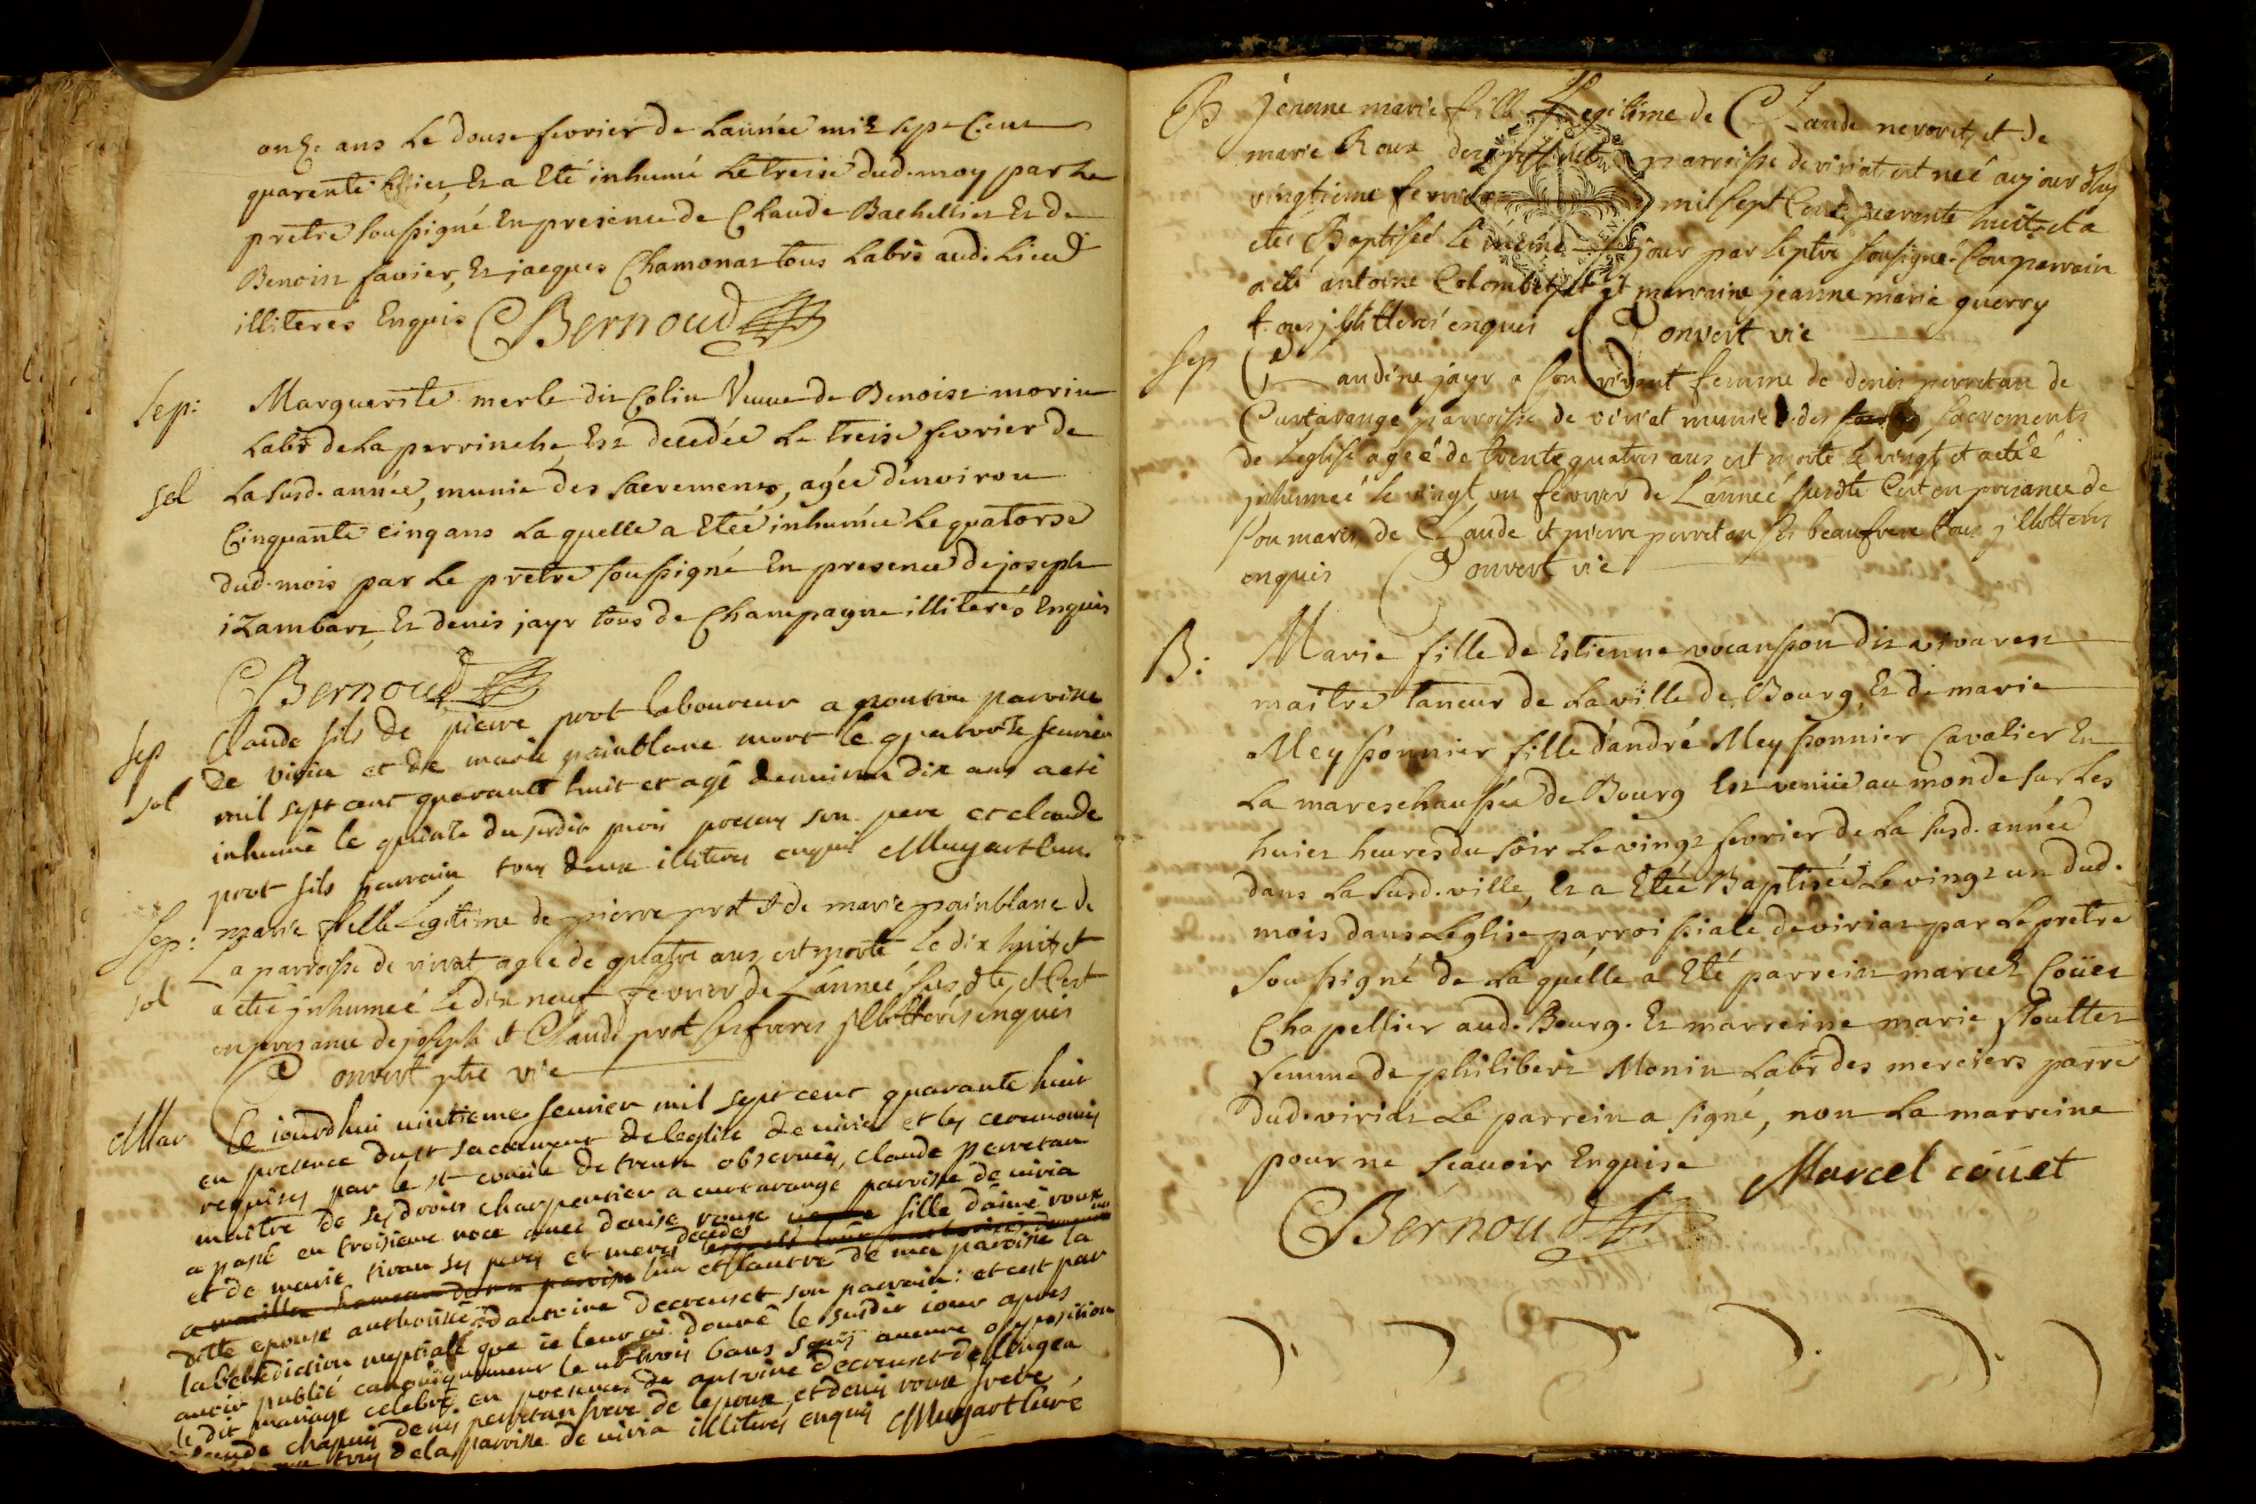 onze ans le douse fevrier de l'année mil sept cent
quarente huict, Et a Eté inhumé le treise dud. moy par le
pretre soussigné En presence de Claude Bachellier Et de
Benoit favier, Et jacques Chamonat tous labrs aud. lieu
illiteres Enquis CBernoud
Sep: Marguerite merle dit Colin veuve de Benoist morin
labr de la perrinche Est decedée le treise fevrier de
sol la susd. année, munie des sacrements, agée d'environ
Cinquante cinq ans la quelle a Eteé inhumée le quatorse
dud. mois par le pretre soussigné En presence de joseph
izambart, Et denis jayr tous de Champagne illiterés Enquis
CBernoud
Sep Claude fils de pierre prot laboureur a paroisse
de viria et de marie painblanc mort le quatorze fevrier
sol mil sept cent quarante huit et agé denviron dix ans a eté
inhumé le quinze du susdit mois presens son pere et claude
prot fils parrain tous deux illiteres enquis Muyart cure
Sep: marie fille Legitime de pierre prot et de marie painblanc de
La parroisse de viriat agée de quatre ans est morte le dix huit et
sol a eté jnhumeé le dix neuf fevrier de L'anneé susdte, et C'est
en presance de joseph et Claude prot ses freres jllitterés enquis
Convert ptre vic
Mar Ce iourdhui vintieme fevrier mil sept cent quarante huit
en presence du st sacrement de leglise de viria et les ceremonies
requises par le st concile de trente observées, claude perretan
maitre de ses droits charpentier a curtarange paroisse de viria
a pasé en troisieme noce avec denise roux fille d'aimé roux
et de marie ses peres et meres decedes
lun et lautre de ma paroisse la
ditte epouse authorisée d'antoine decreuset son parrain: et cest par
la benediction nuptiale que ie leur ai donné le susdit iour apres
avoir publié canoniquement les trois bans sans aucune opposition
le dit mariage celebré en presence de antoine decreuset de lingen
claude chapuis denis perretan frere de lepoux et denis roux frere,
tous de la paroisse de viria illiteres enquis Muyart curé
B jeanne marie fille Legitime de Claude nevoret, et de
marie Roux de parroisse de viriat est neé aujourdhuy
vingtieme fevrier mil sept Cent quarante huit et a
eteé Baptisée le même jour par le ptre sousigné son parrain
a eté antoine Colombet, et marraine jeanne marie guerry
tous jllitterés enquis Convert vic
Sep Claudine jayr a son vivant femme de denis perretan de
Curtarange parroisse de viriat munie des sacrements
de L'eglise ageé de trente quatres ans est morte le vingt et a eteé
jnhumeé le vingt un fevrier de L'anneé susdte C'est en presance de
son mari, de Claude et pierre perretan ses beaufrere tous jllitterés
enquis Convert vic
B: Marie fille de Estienne vocanson dit vivarest
maitre taneur de la ville de Bourg, Et de marie
Meyssonnier fille d'andré Meyssonnier Cavalier En
la mareschaussée de Bourg Est venüe au monde sur les
huict heures du soir le vingt fevrier de la susd. année
dans la susd. ville, Et a Eteé Baptisée le vingt un dud.
mois dans L'eglise parroissiale de viriat par le pretre
soussigné de la quelle a Eté parrein marcel Coüet
Chapellier aud. Bourg. Et marreine marie floutter
femme de philibert Monin labr des merciers parre
dud. viriat Le parrein a signé, non la marreine
pour ne sçavoir Enquise Marcel coüet
CBernoud